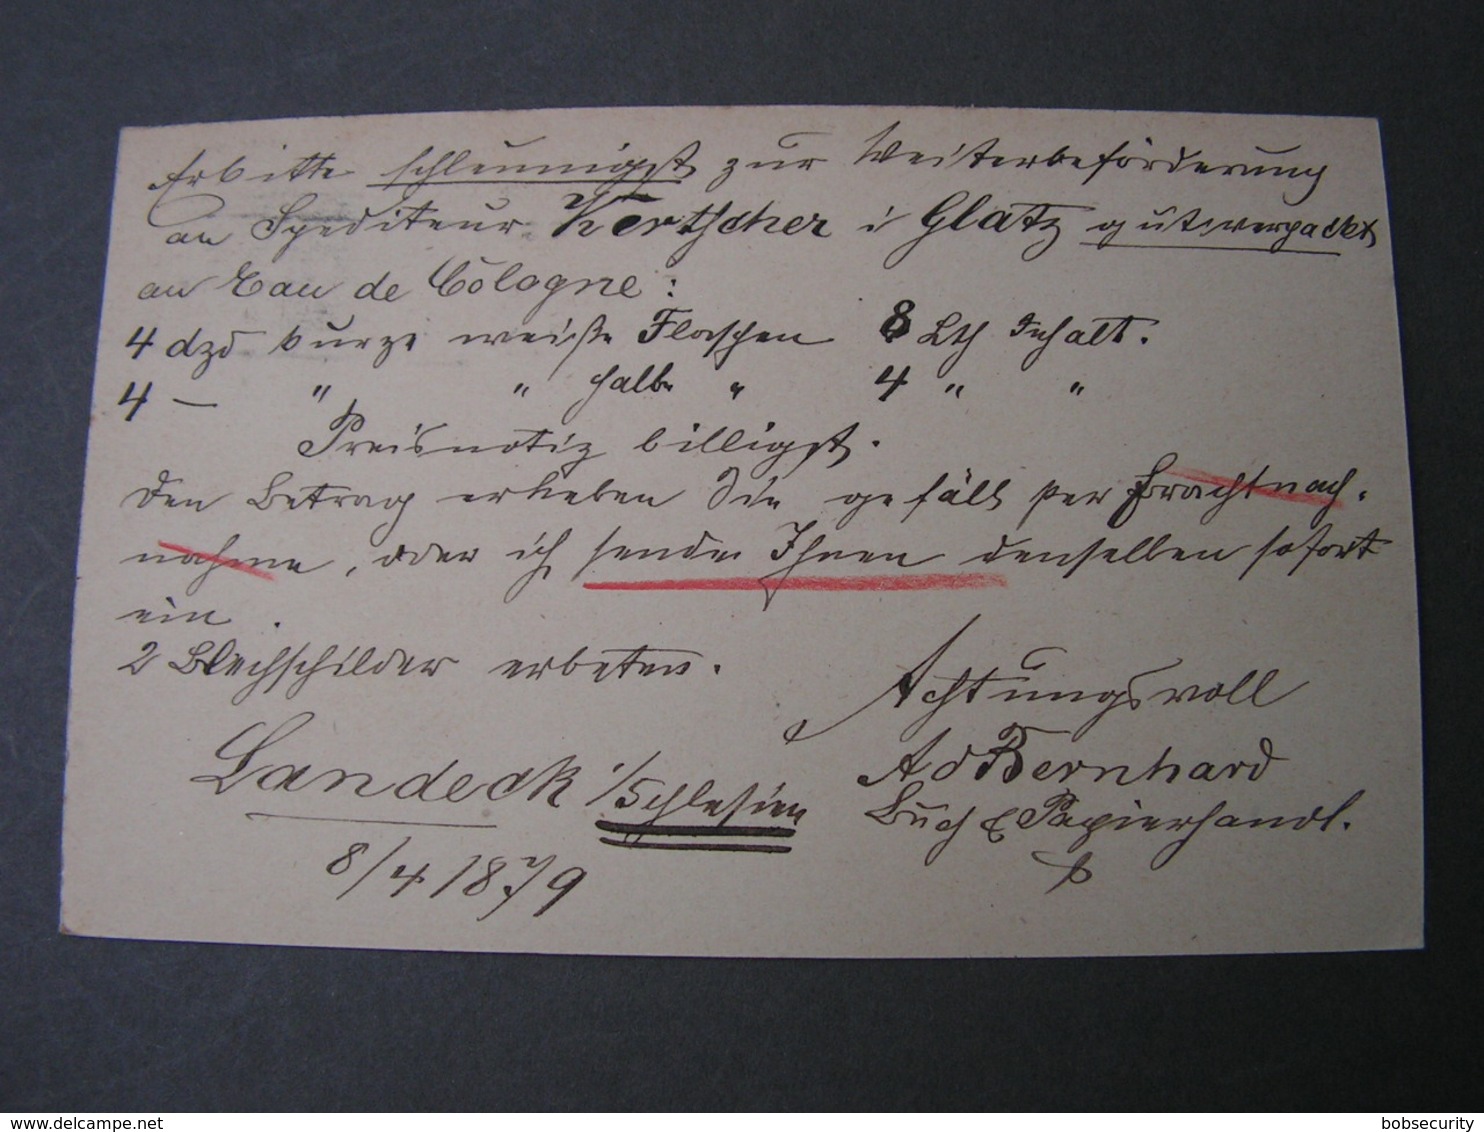 Erbitte schleunigst zur Weiterbeförderung
an Spediteur Kertscher i Glatz gut verpackt
an Eau de Cologne:
4 dzd kurze weiße Flaschen 8 Lth Inhalt.
4 — " " halbe " 4 " "
Preisnotiz billigst.
Den Betrag erheben Sie gefäll per Frachtnach-
nahme, oder ich sende Ihnen denselben sofort
ein.
2 Blechschilder erbeten.
Achtungsvoll
Ad Bernhard
Buch & Papierhandl.
Landeck i/Schlesien
8/4 1879
delcampe.net
bobsecurity